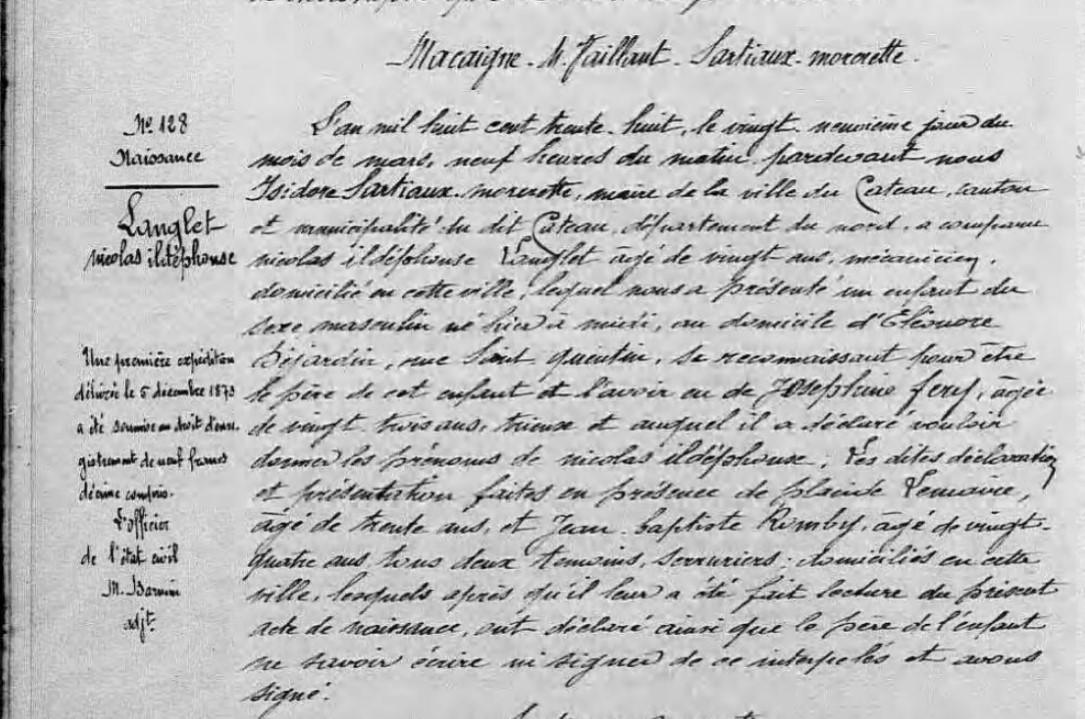 Macaigne - M. Taillant - Sartiaux - mororette.
Nº 128
Naissance
Langlet
nicolas ildéphonse
Une première expédition
délivrée le 5 décembre 1873
a été soumise au droit d'enre-
gistrement de neuf francs
décime compris.
L'officier
de l'état civil
adjt.
L'an mil huit cent trente-huit, le vingt-neuvième jour du
mois de mars, neuf heures du matin, pardevant nous
Isidore Sartiaux-mororette, maire de la ville du Cateau, canton
et municipalité du dit Cateau, département du nord, a comparu
nicolas ildéphonse Langlet âgé de vingt ans, mécanicien,
domicilié en cette ville, lequel nous a présenté un enfant du
sexe masculin né hier à midi, au domicile d'Eléonore
Déjardin, rue Saint quentin, se reconnaissant pour être
le père de cet enfant et l'avoir eu de Joséphine fery, âgée
de vingt trois ans, trieuse et auquel il a déclaré vouloir
donner les prénoms de nicolas ildéphonse; Les dites déclaration
et présentation faites en présence de placide Lemaire,
âgé de trente ans, et Jean-baptiste Romby, âgé de vingt-
quatre ans, tous deux témoins, serruriers, domiciliés en cette
ville, lesquels après qu'il leur a été fait lecture du présent
acte de naissance, ont déclaré ainsi que le père de l'enfant
ne savoir écrire ni signer de ce interpelés et avons
signé.